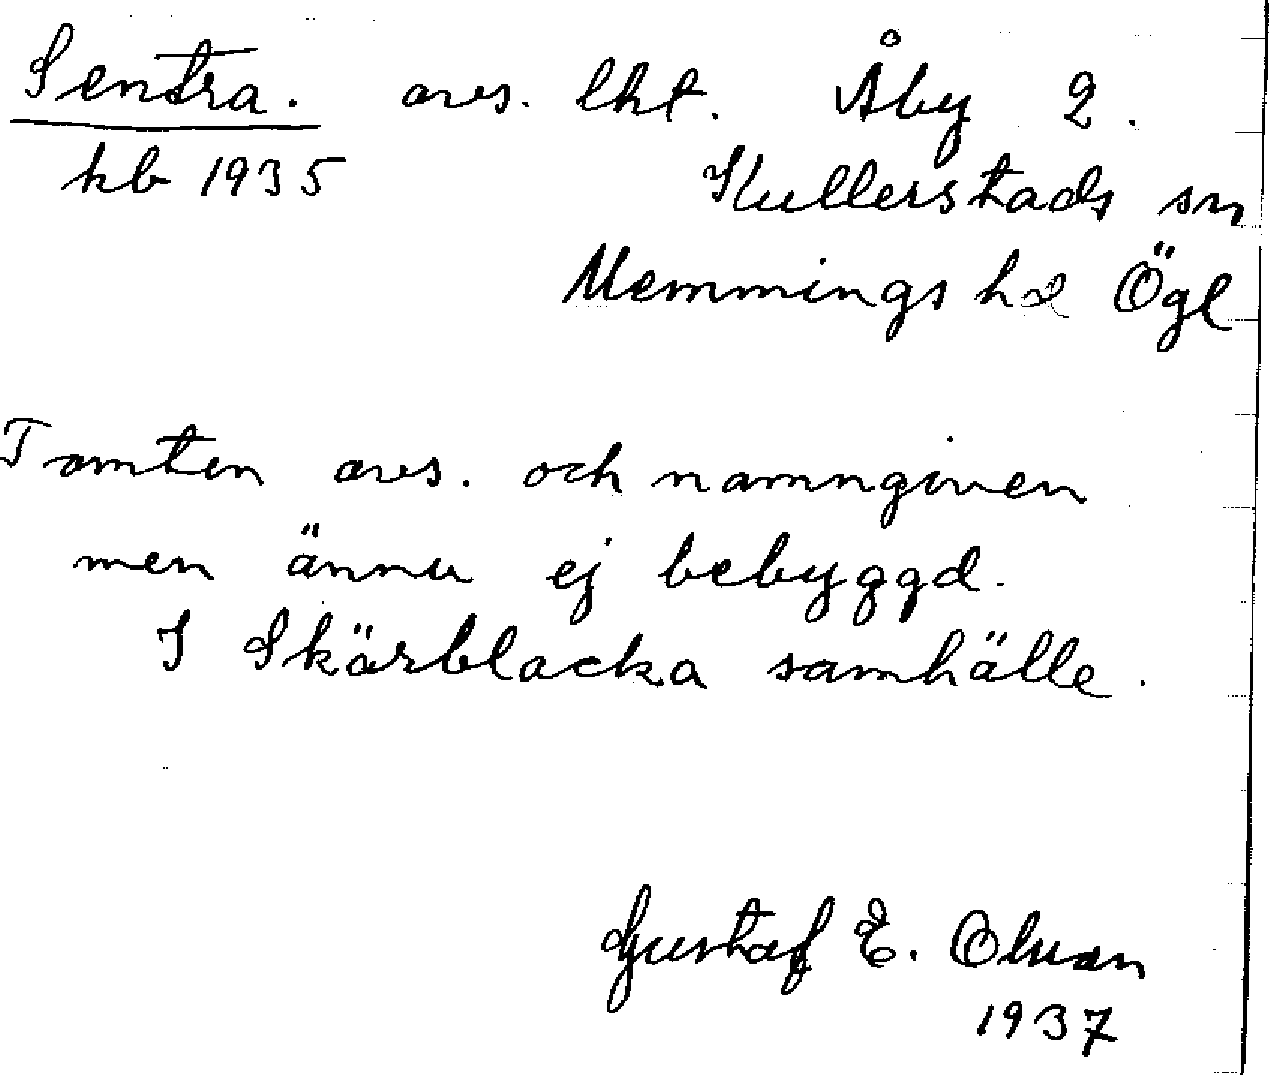 Sentra. avs. lht. Åby 2.
kb 1935 Kullerstads sn
Memmings hd Ögl
Tomten avs. och namngiven
men ännu ej bebyggd.
I Skärblacka samhälle.
Gustaf E. Olsson
1937